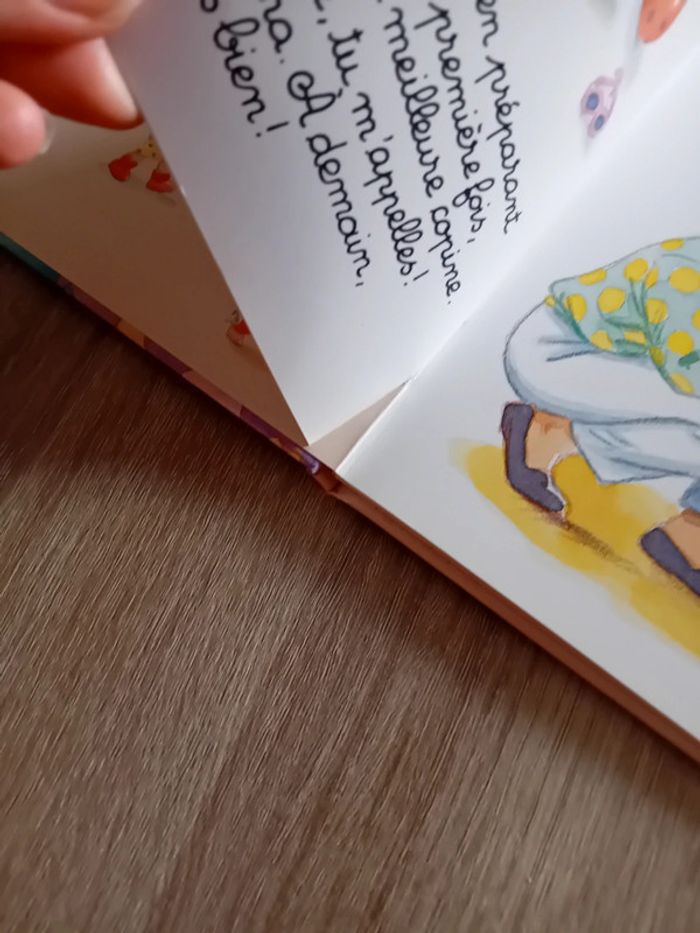 en préparant
première fois,
meilleure copine.
, tu m'appelles!
À demain,
bien!